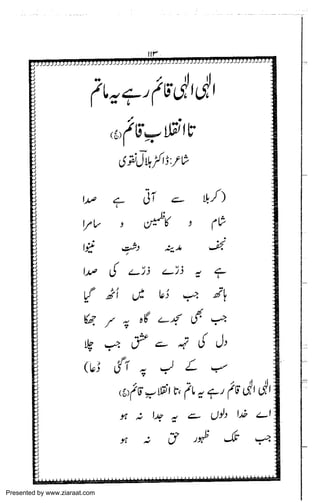 ۱۱۳
الٰہی الٰہی قائم رہے یہ ماتم
تا انقلابِ قائم (عج)
شاعر: ڈاکٹر ہلال نقوی
(کربلا سے آتی ہے صدا
شام و کاظمین و سامرا
نجف مدینہ دشتِ نینوا
ہے یہ ذرّے ذرّے کی صدا
ہاتھ جب دُعا میں اُٹھ گیا
جب بھی سجدے گاہ پہ سر جھکا
دل کی تہہ سے عشق جب چلا
سب کے لب پہ آگئی دُعا)
الٰہی الٰہی قائم رہے یہ ماتم، تا انقلابِ قائم (عج)
اے خدا دلوں سے یہ جدا نہ ہو
جب تلک ظہور حق نہ ہو
Presented by www.ziaraat.com